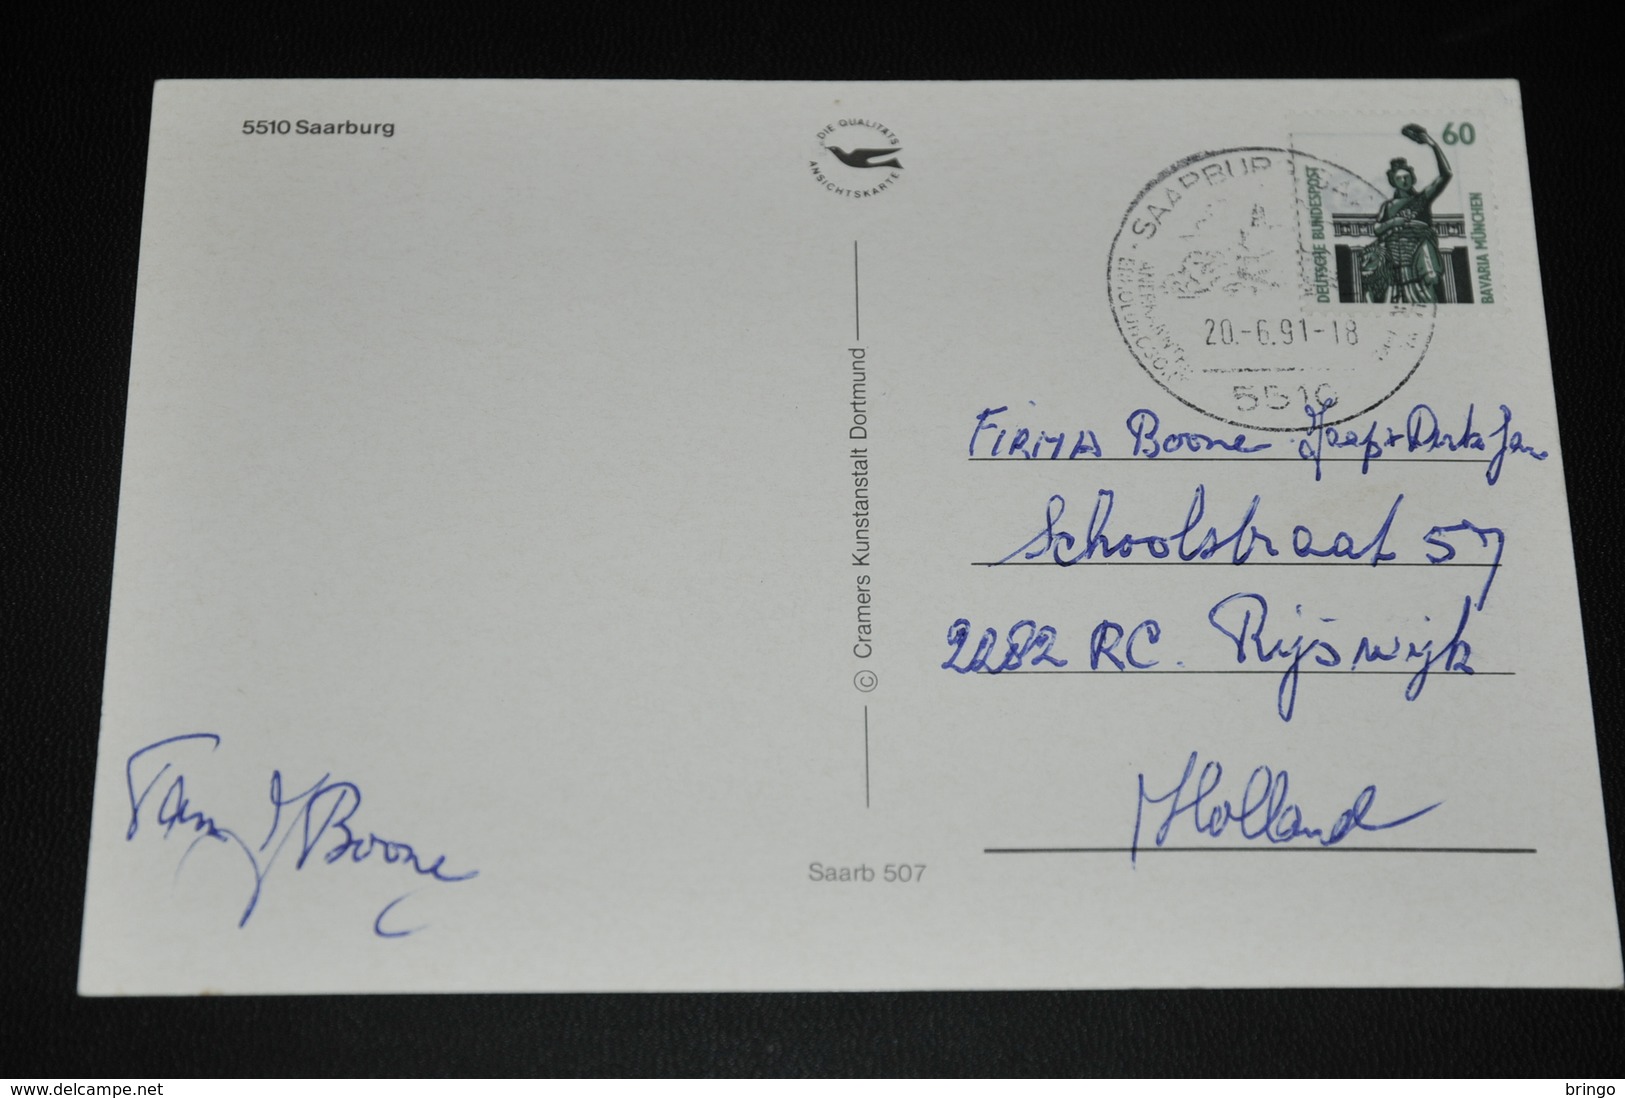 5510 Saarburg
DIE QUALITÄTS
ANSICHTSKARTE
60
DEUTSCHE BUNDESPOST
BAVARIA MÜNCHEN
SAARBUR
ANERKANNTER
ERHOLUNGSORT
20.-6.91-18
5510
FIRMA Boone Jaap + Dirk Jan
Schoolstraat 57
2282 RC. Rijswijk
Holland
© Cramers Kunstanstalt Dortmund
Saarb 507
Boone
delcampe.net
bringo